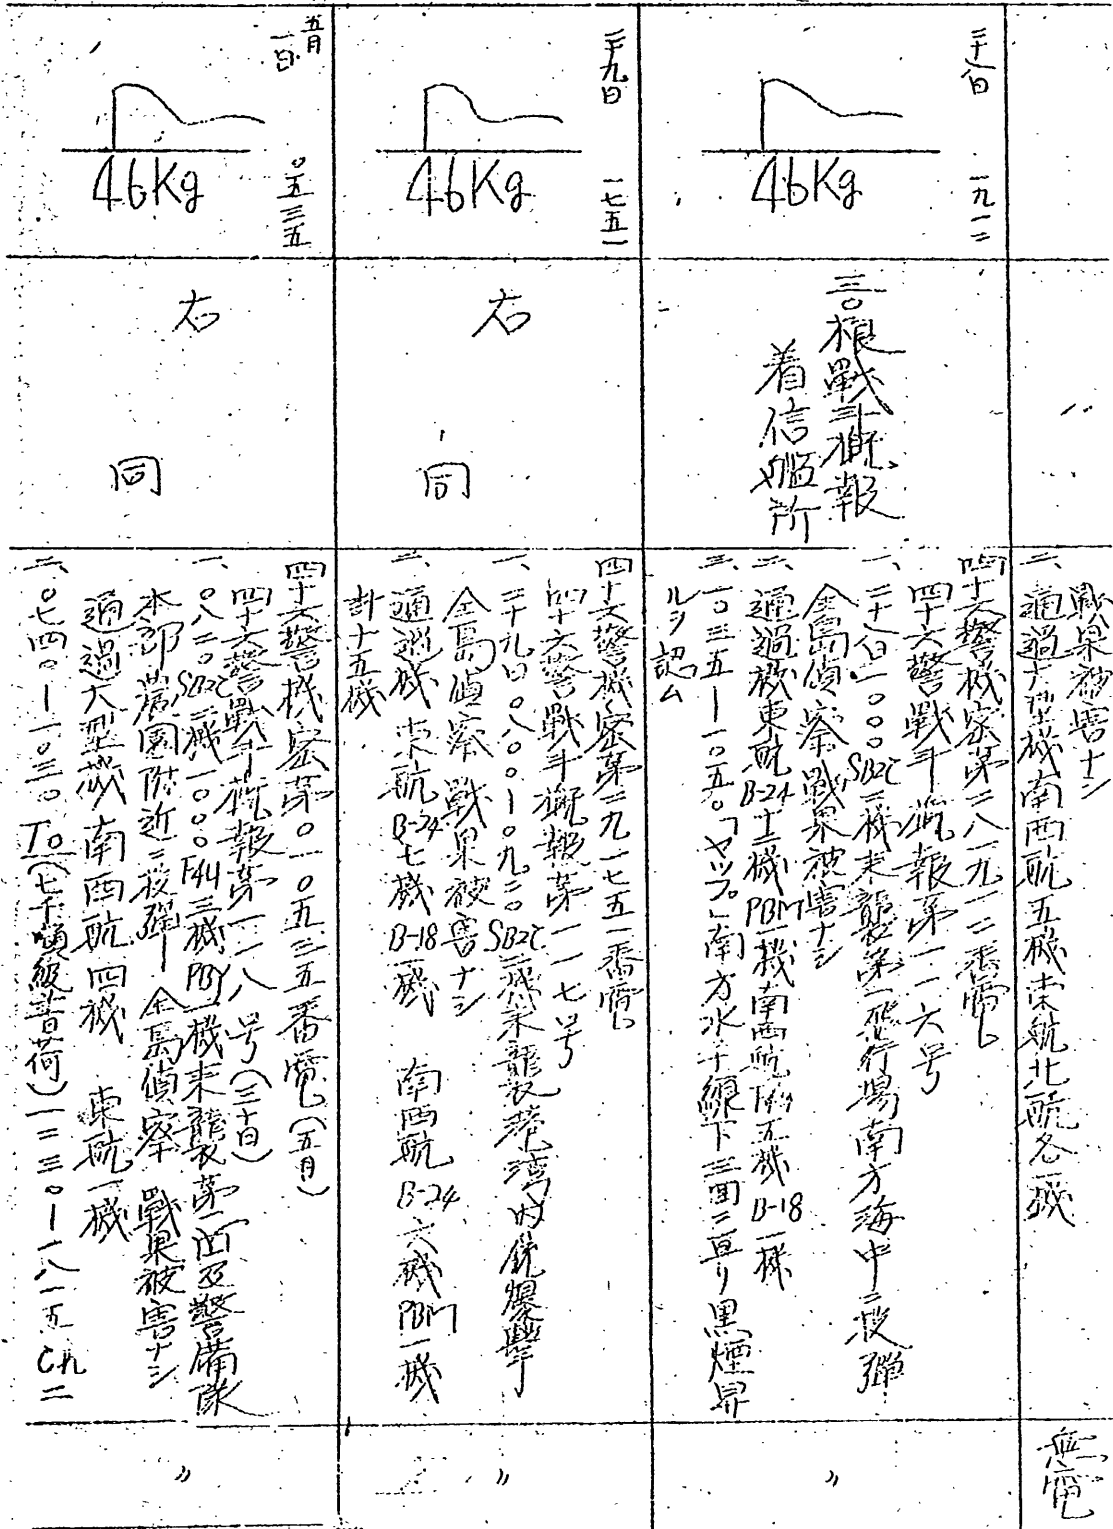 戰果被害ナシ
二、通過大型機南西航五機東航北航各一機
無電
二十八日 一九一二
46Kg
三〇根戰斗概報
着信艦所
四十六警機密第二八一九一二番電
四十六警戰斗概報第一一六号
一、二十八日一〇〇〇SB2C二機来襲第一飛行場南方海中ニ投弾
全島偵察戰果被害ナシ
二、通過機東航B-24十二機PBM一機南西航F4U五機B-18一機
三、一〇三五―一〇五〇「ヤップ」南方水平線下三回ニ亘リ黒煙昇
ルヲ認ム
〃
二十九日 一七五一
46Kg
右 同
四十六警機密第二九一七五一番電
四十六警戰斗概報第一一七号
一、二十九日〇八〇〇―〇九二〇SB2C二機来襲港湾内銃爆撃
全島偵察 戰果被害ナシ
二、通過機 東航B-24七機B-18一機 南西航B-24六機PBM一機
計十五機
〃
五月一日 〇五三五
46Kg
右 同
四十六警機密第〇一〇五三五番電(五月)
四十六警戰斗概報第一一八号(三十日)
一、〇八二〇SB2C二機一〇〇〇F4U三機PBY一機来襲第一面及警備隊
本部農園附近ニ投弾 全島偵察 戰果被害ナシ
通過大型機 南西航四機 東航一機
二、〇七四〇―一〇三〇 TO(七千噸級普荷)一二三〇―一八一五Ch二
〃